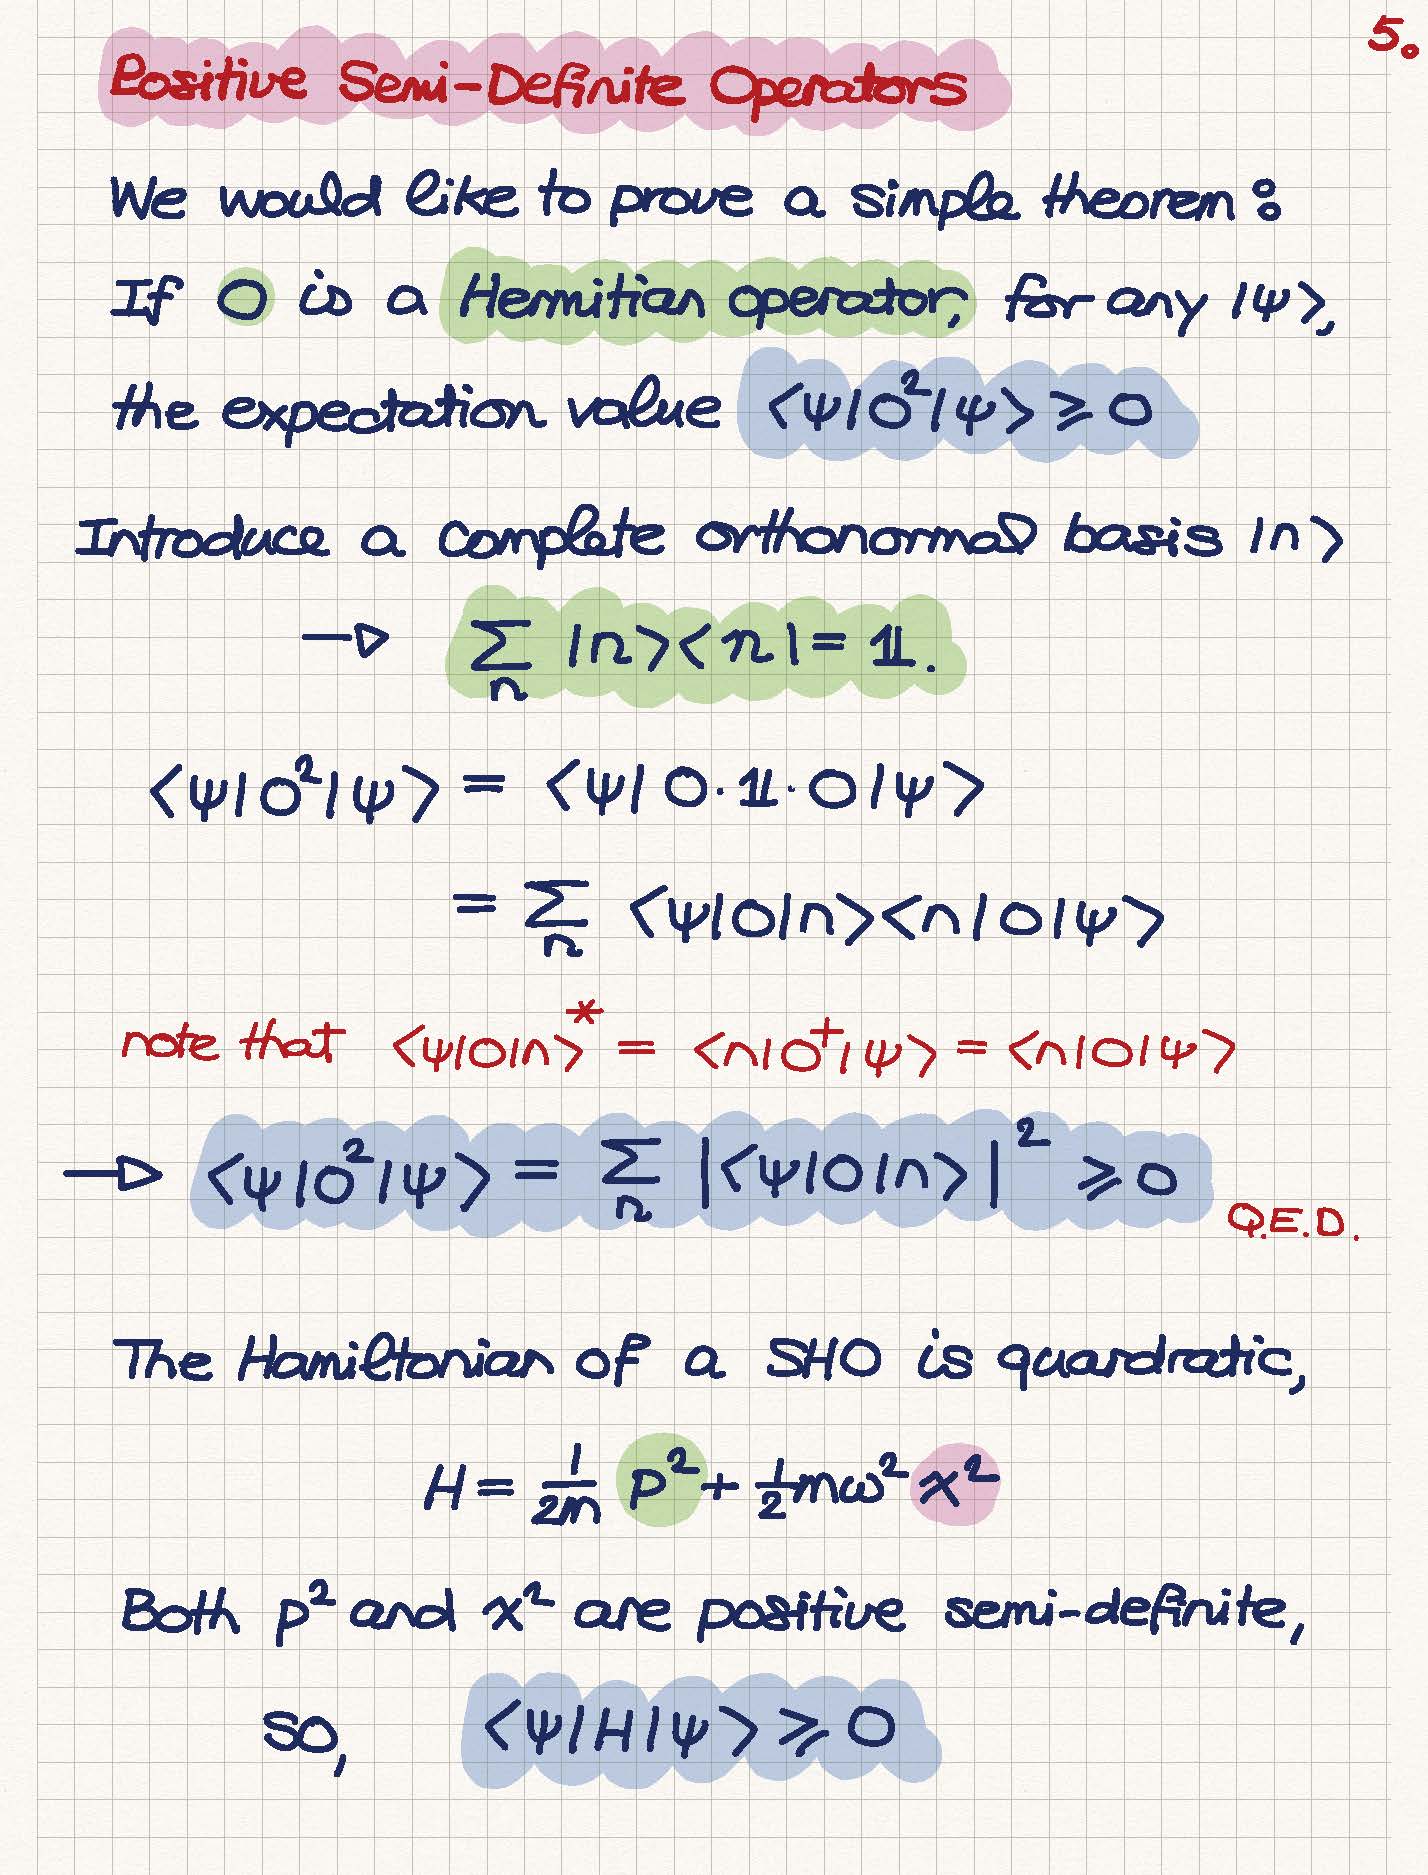 5.
Positive Semi-Definite Operators
We would like to prove a simple theorem:
If O is a Hermitian operator, for any |ψ>,
the expectation value <ψ|O²|ψ> ⩾ 0
Introduce a complete orthonormal basis |n>
→ Σₙ |n><n| = 𝟙.
<ψ|O²|ψ> = <ψ|O·𝟙·O|ψ>
= Σₙ <ψ|O|n><n|O|ψ>
note that <ψ|O|n>* = <n|O†|ψ> = <n|O|ψ>
→ <ψ|O²|ψ> = Σₙ |<ψ|O|n>|² ⩾ 0
Q.E.D.
The Hamiltonian of a SHO is quardratic,
H = 1/2m p² + 1/2 mω² x²
Both p² and x² are positive semi-definite,
so, <ψ|H|ψ> ⩾ 0